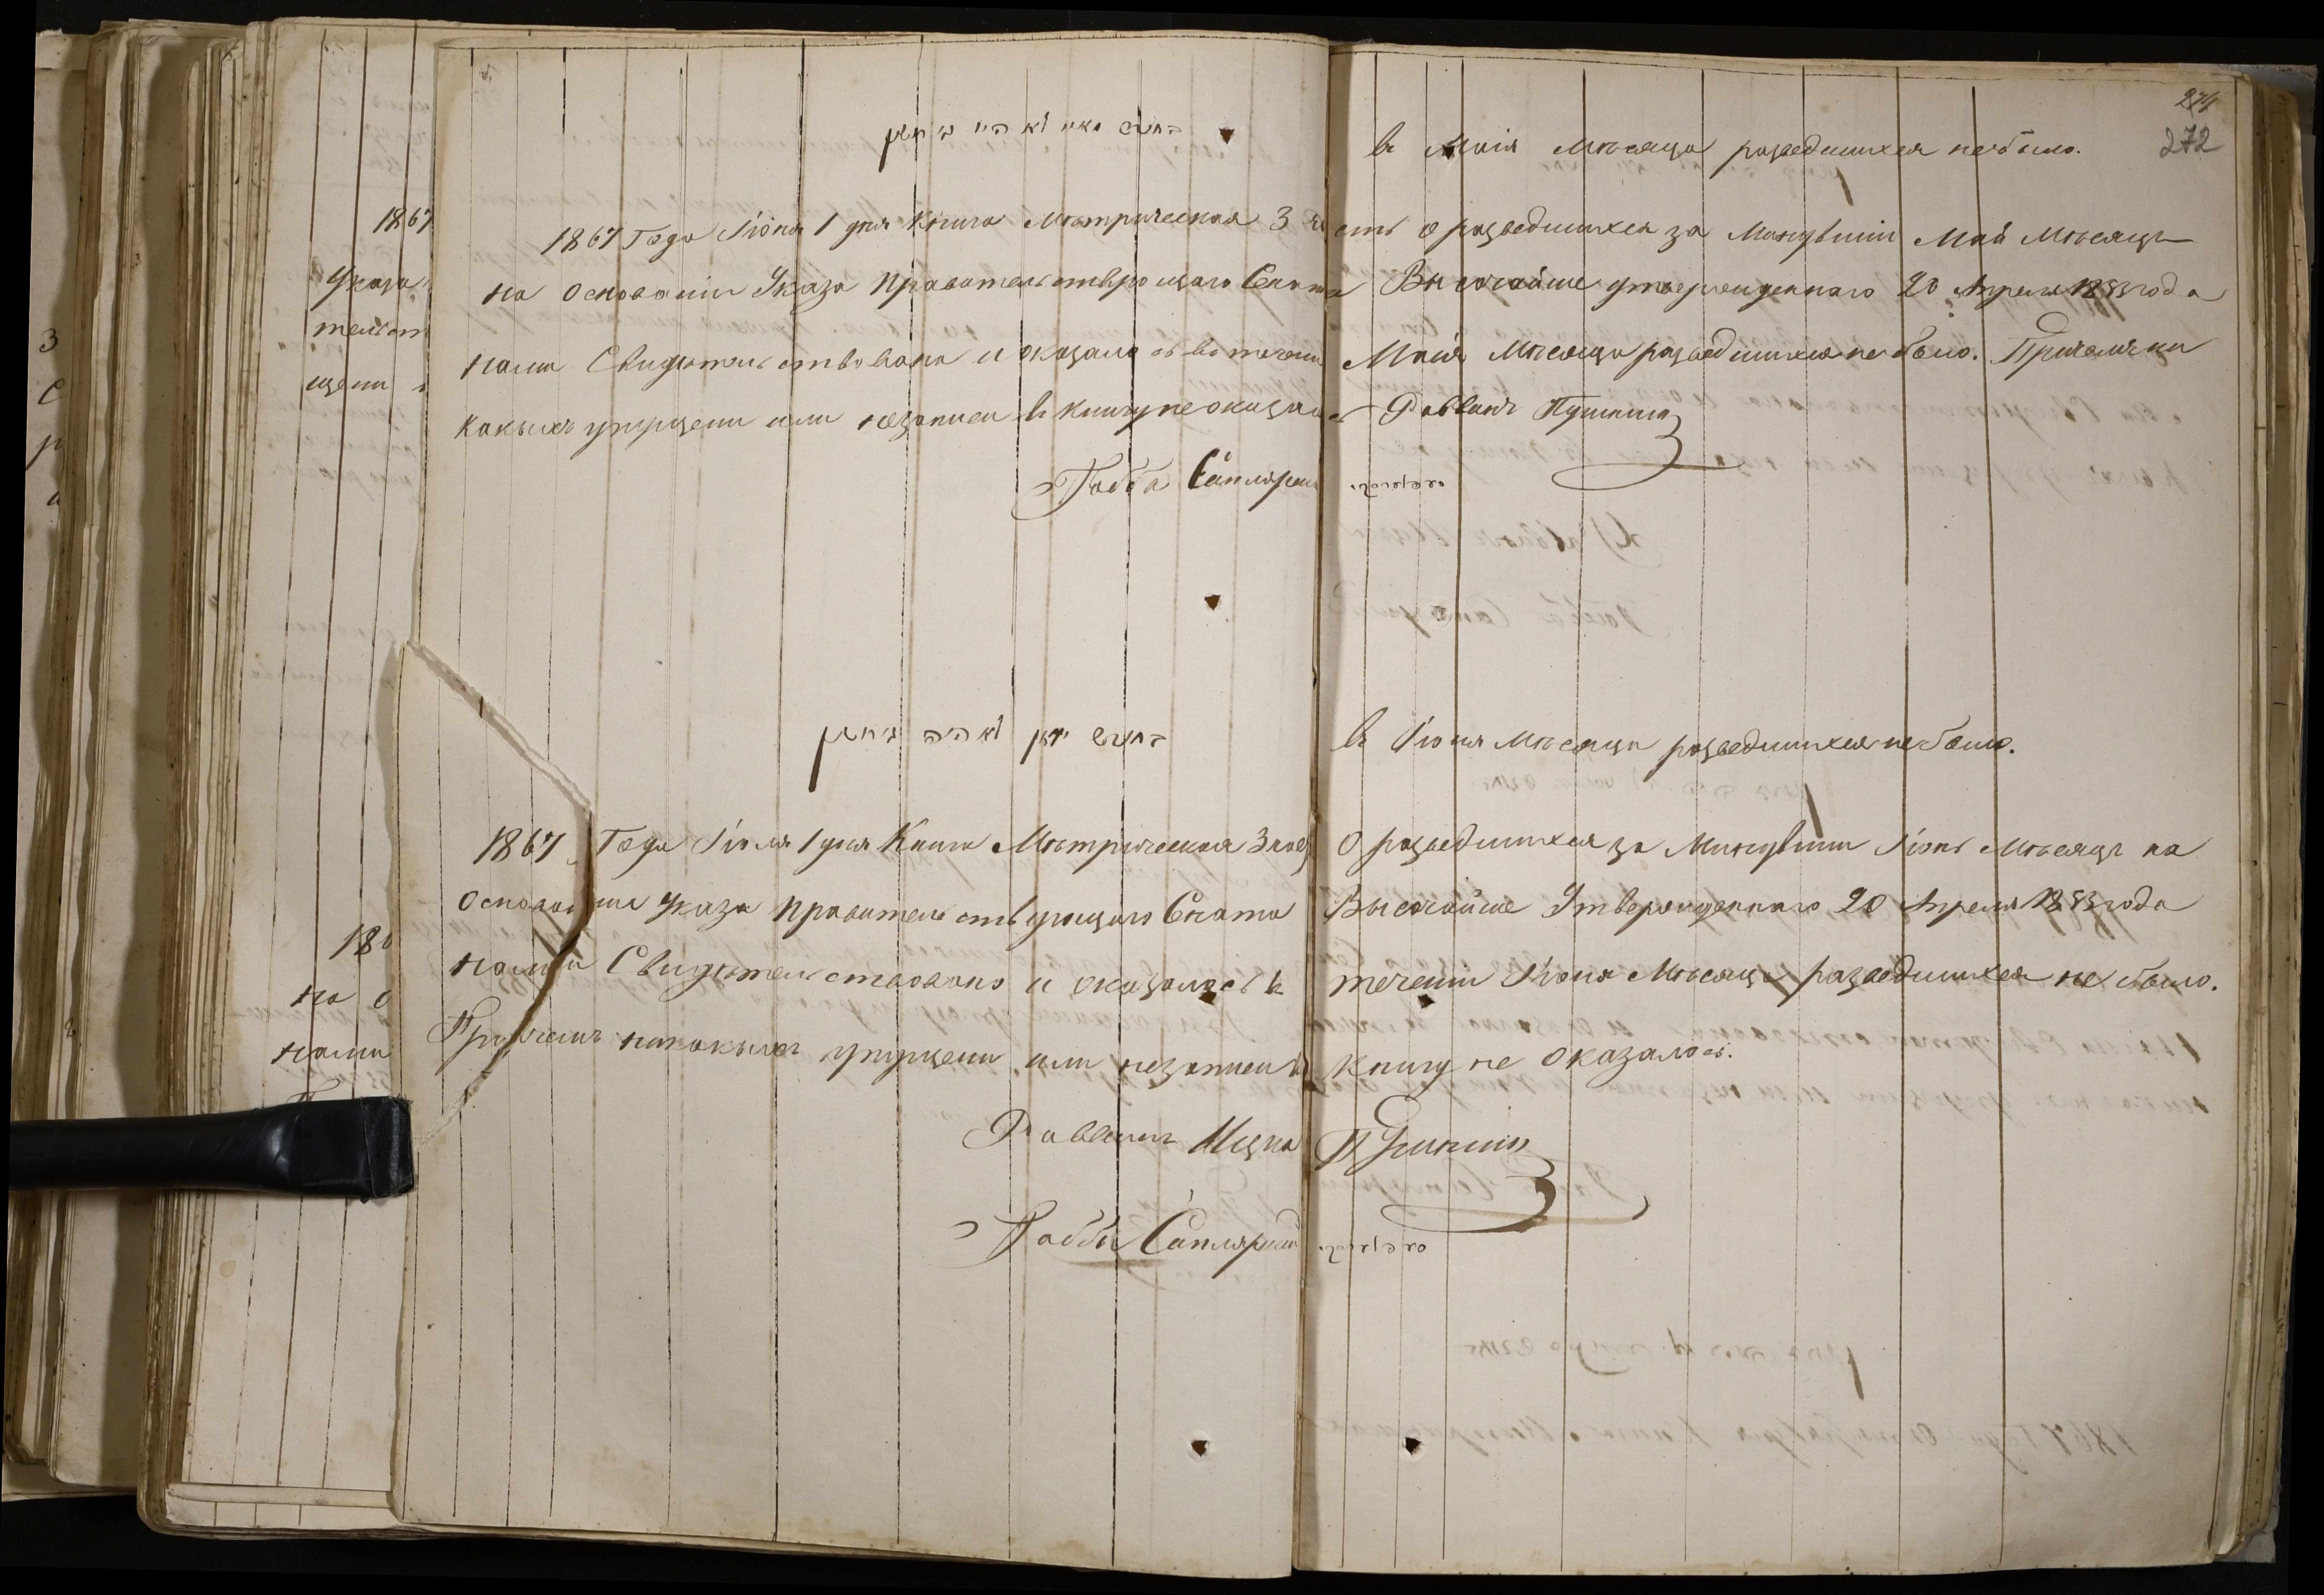 274
272
בחודש מאי לא היו גירושין
в Маія Месяца разведшихся небыло.
1867 Года Іюня 1 дня Книга Метрическая 3 часть о разведшихся за Минувший Май Месяцъ
на Основании Указа Правительствующаго Сената Высочайше утвержденнаго 20 Апреля 1853 года
нами Свидетельствована и оказалось в течении Маія Месяца разведшихся не было. Причемъ ни
какыхъ упущеній или незаписей в книгу не оказалось Раввинъ Пушкинъ
Рабба
בחודש יוני לא היה גירושין
в Іюня Месяца разведшихся не было.
1867 Года Іюля 1 дня Книга Метрическая 3 часть О разведшихся за Минувший Іюнь Месяцъ на
Основании Указа Правительствующаго Сената Высочайше Утвержденнаго 20 Апреля 1853 года
нами Свидетельствовано и оказалось в течении Іюня Месяца разведшихся не было.
Причемъ никакыхъ упущеній или незаписей в Книгу не Оказалось.
Раввинъ Ицка Пушкинъ
Рабба
1867
Указа
нами